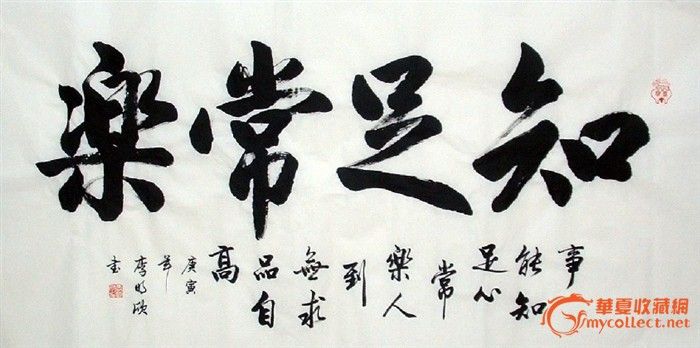 知足常樂
事
能知
足心
常
樂人
到
無求
品自
高
庚寅
年
李明
书
華夏收藏網
mycollect.net